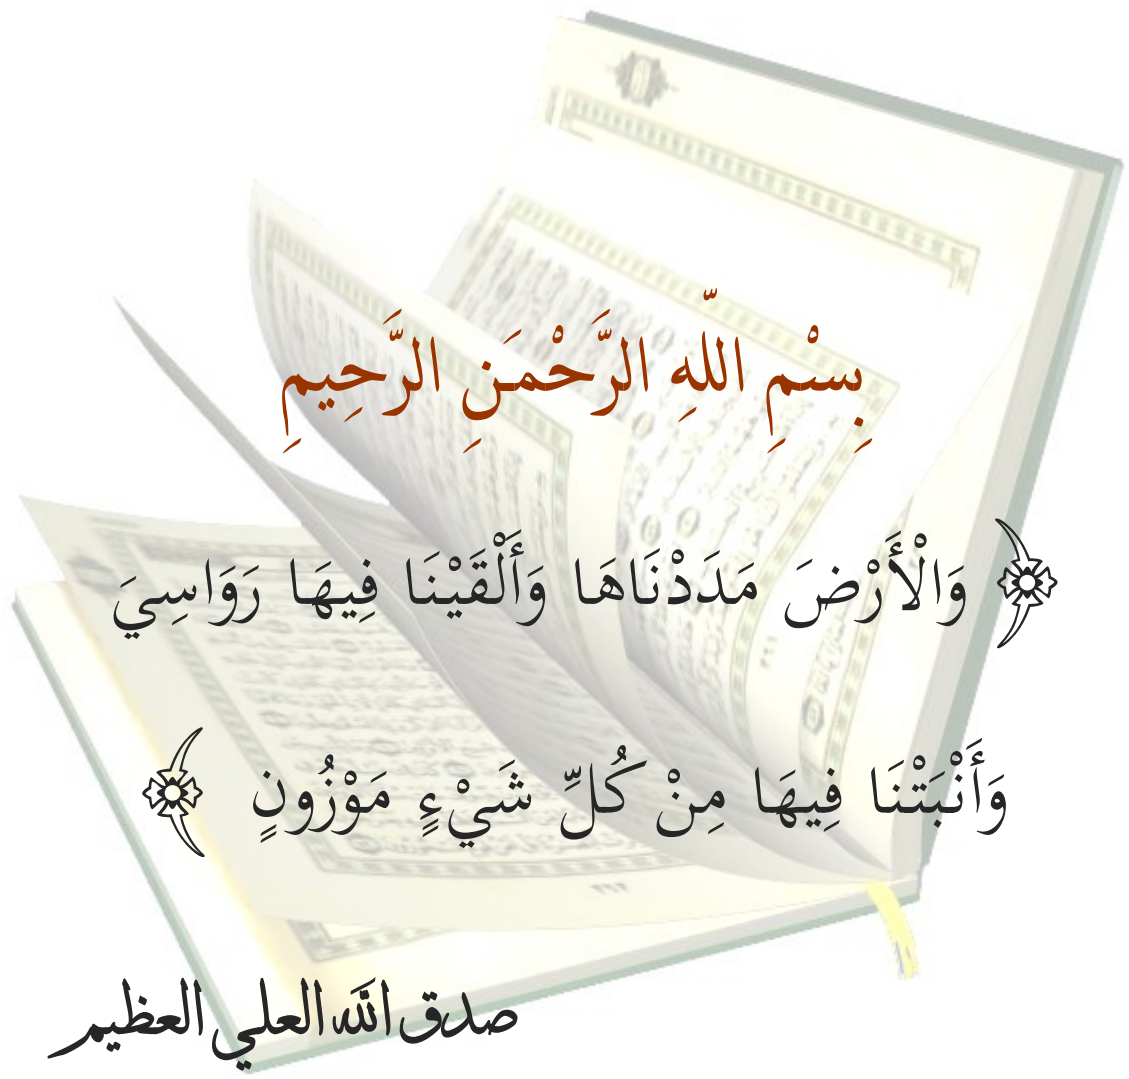 بِسْمِ اللّهِ الرَّحْمَنِ الرَّحِيمِ
﴿ وَالْأَرْضَ مَدَدْنَاهَا وَأَلْقَيْنَا فِيهَا رَوَاسِيَ
وَأَنْبَتْنَا فِيهَا مِنْ كُلِّ شَيْءٍ مَوْزُونٍ ﴾
صدق الله العلي العظيم